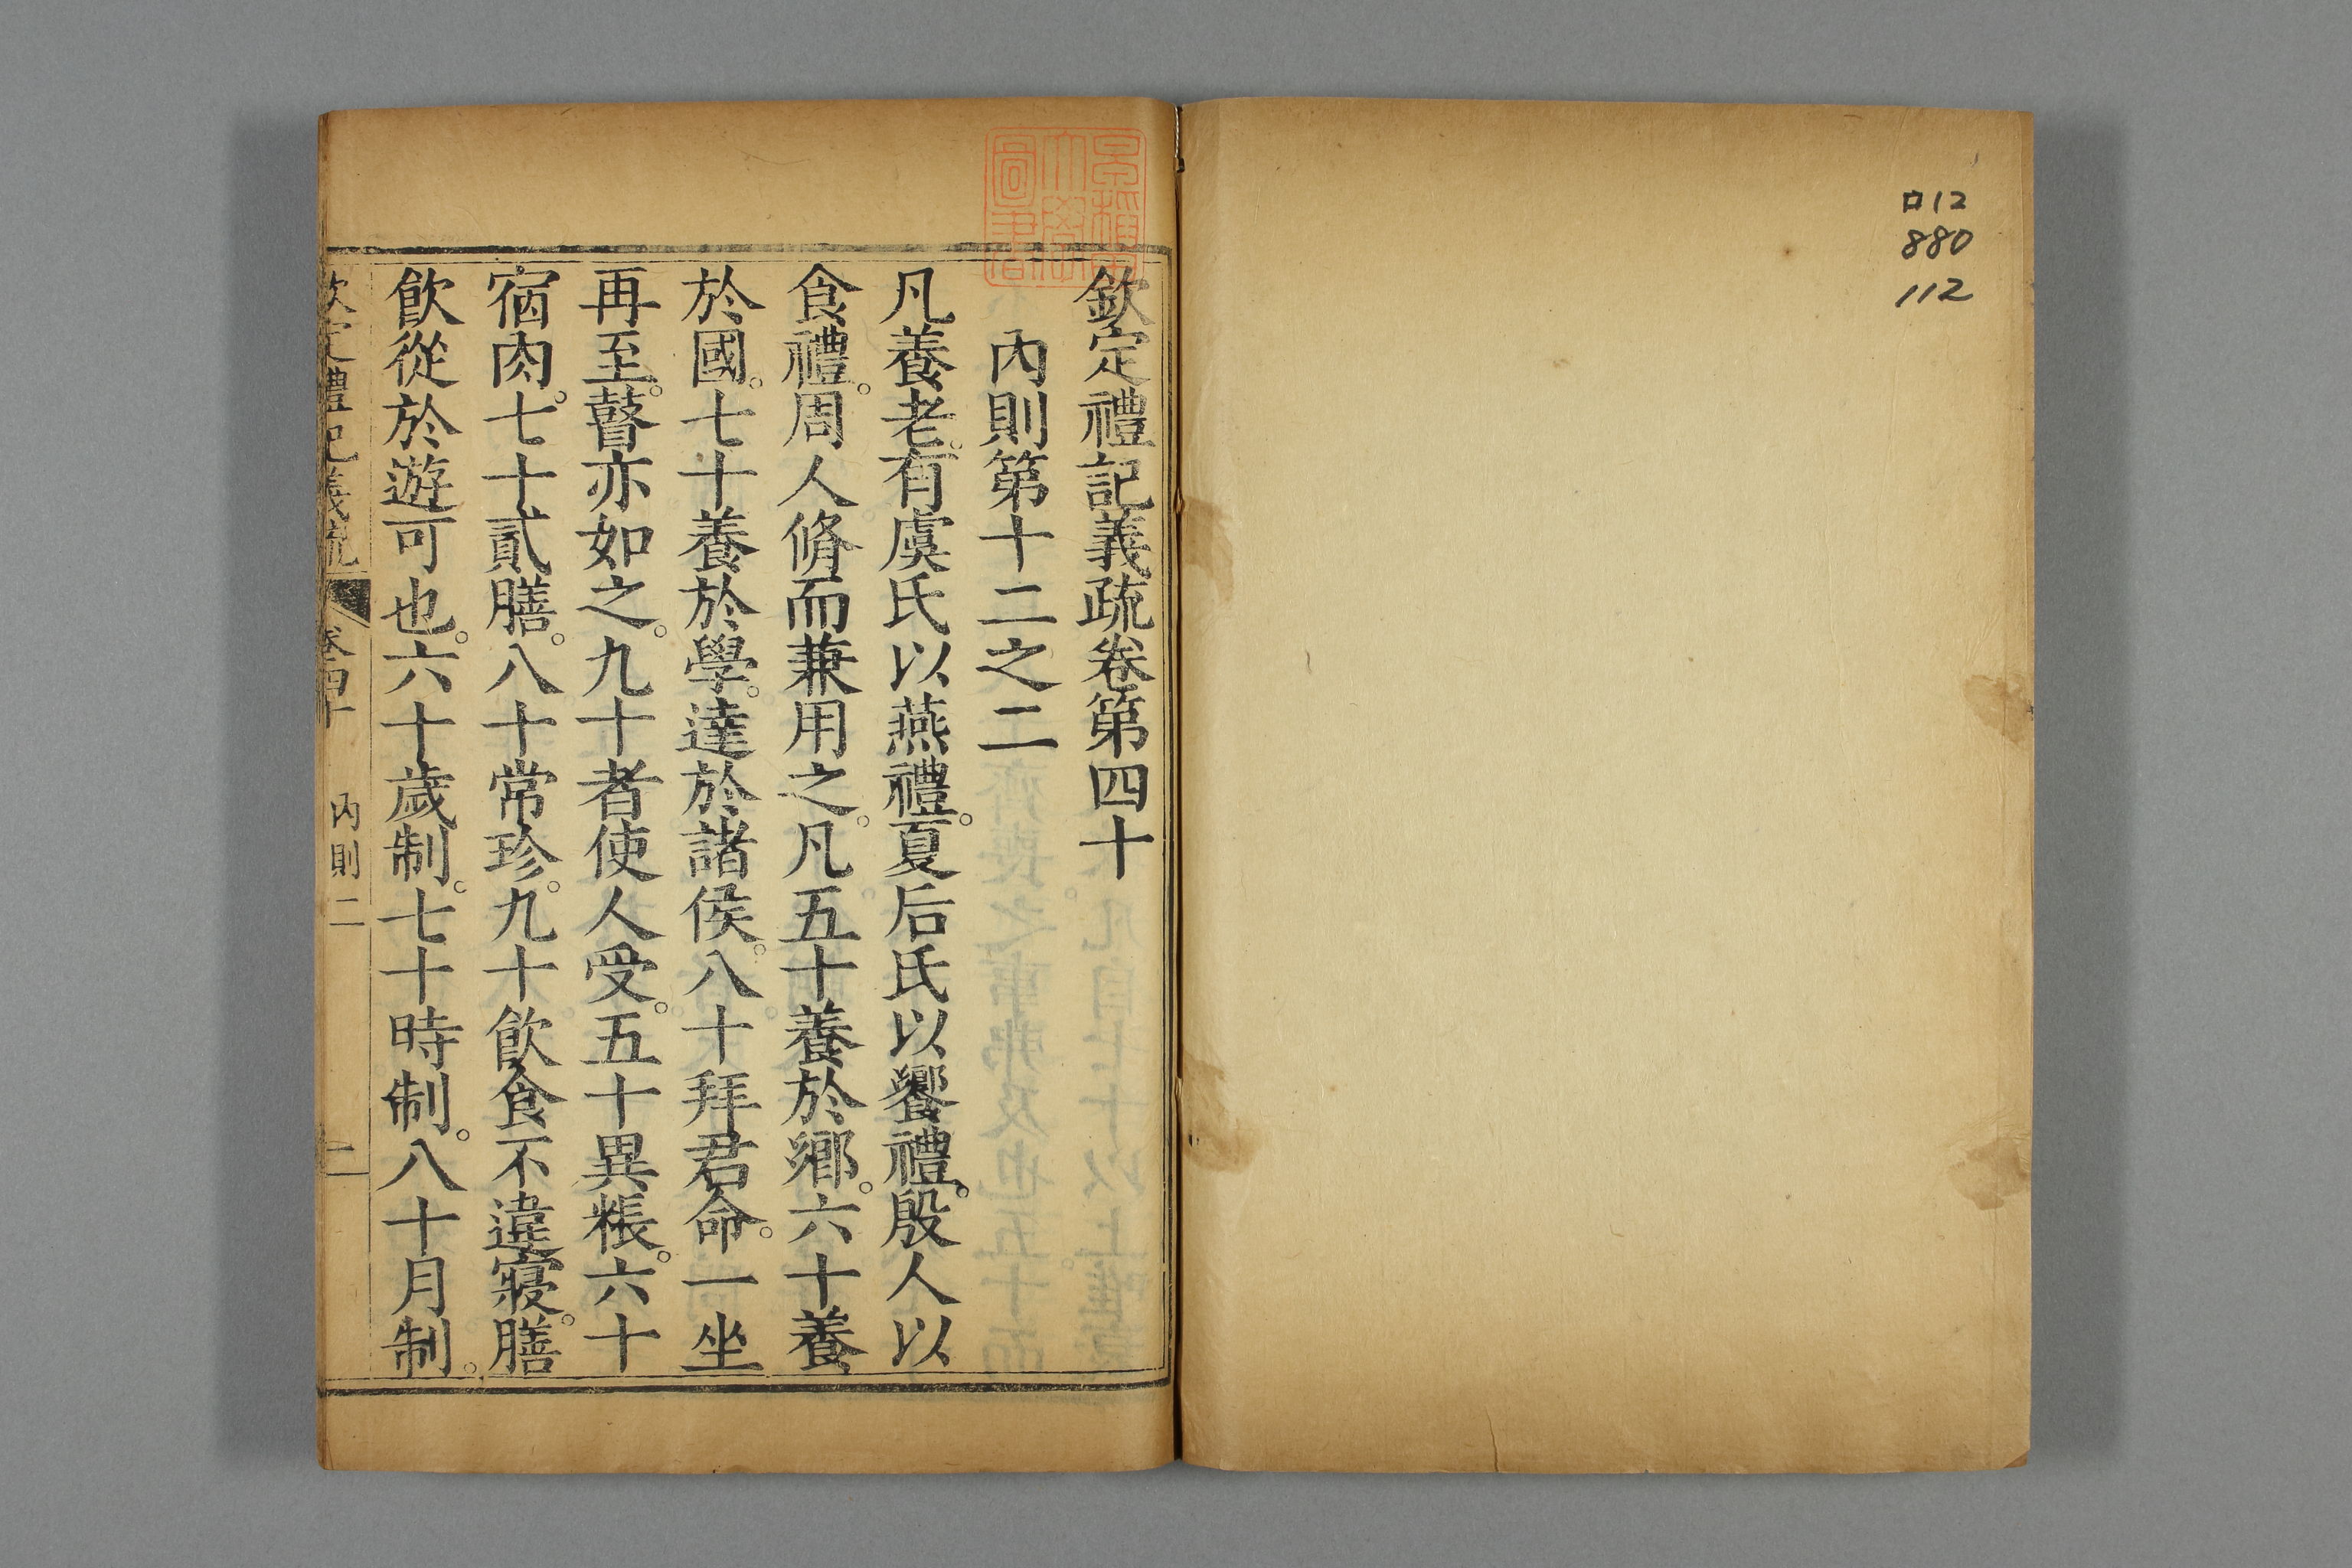 口12
880
112
早稲田大學圖書
欽定禮記義疏卷第四十
內則第十二之二
凡養老。有虞氏以燕禮。夏后氏以饗禮。殷人以
食禮。周人脩而兼用之。凡五十養於鄉。六十養
於國。七十養於學。達於諸侯。八十拜君命。一坐
再至。瞽亦如之。九十者使人受。五十異粻。六十
宿肉。七十貳膳。八十常珍。九十飲食不違寢。膳
飲從於遊可也。六十歲制。七十時制。八十月制。
欽定禮記義疏 卷四十 內則二 一